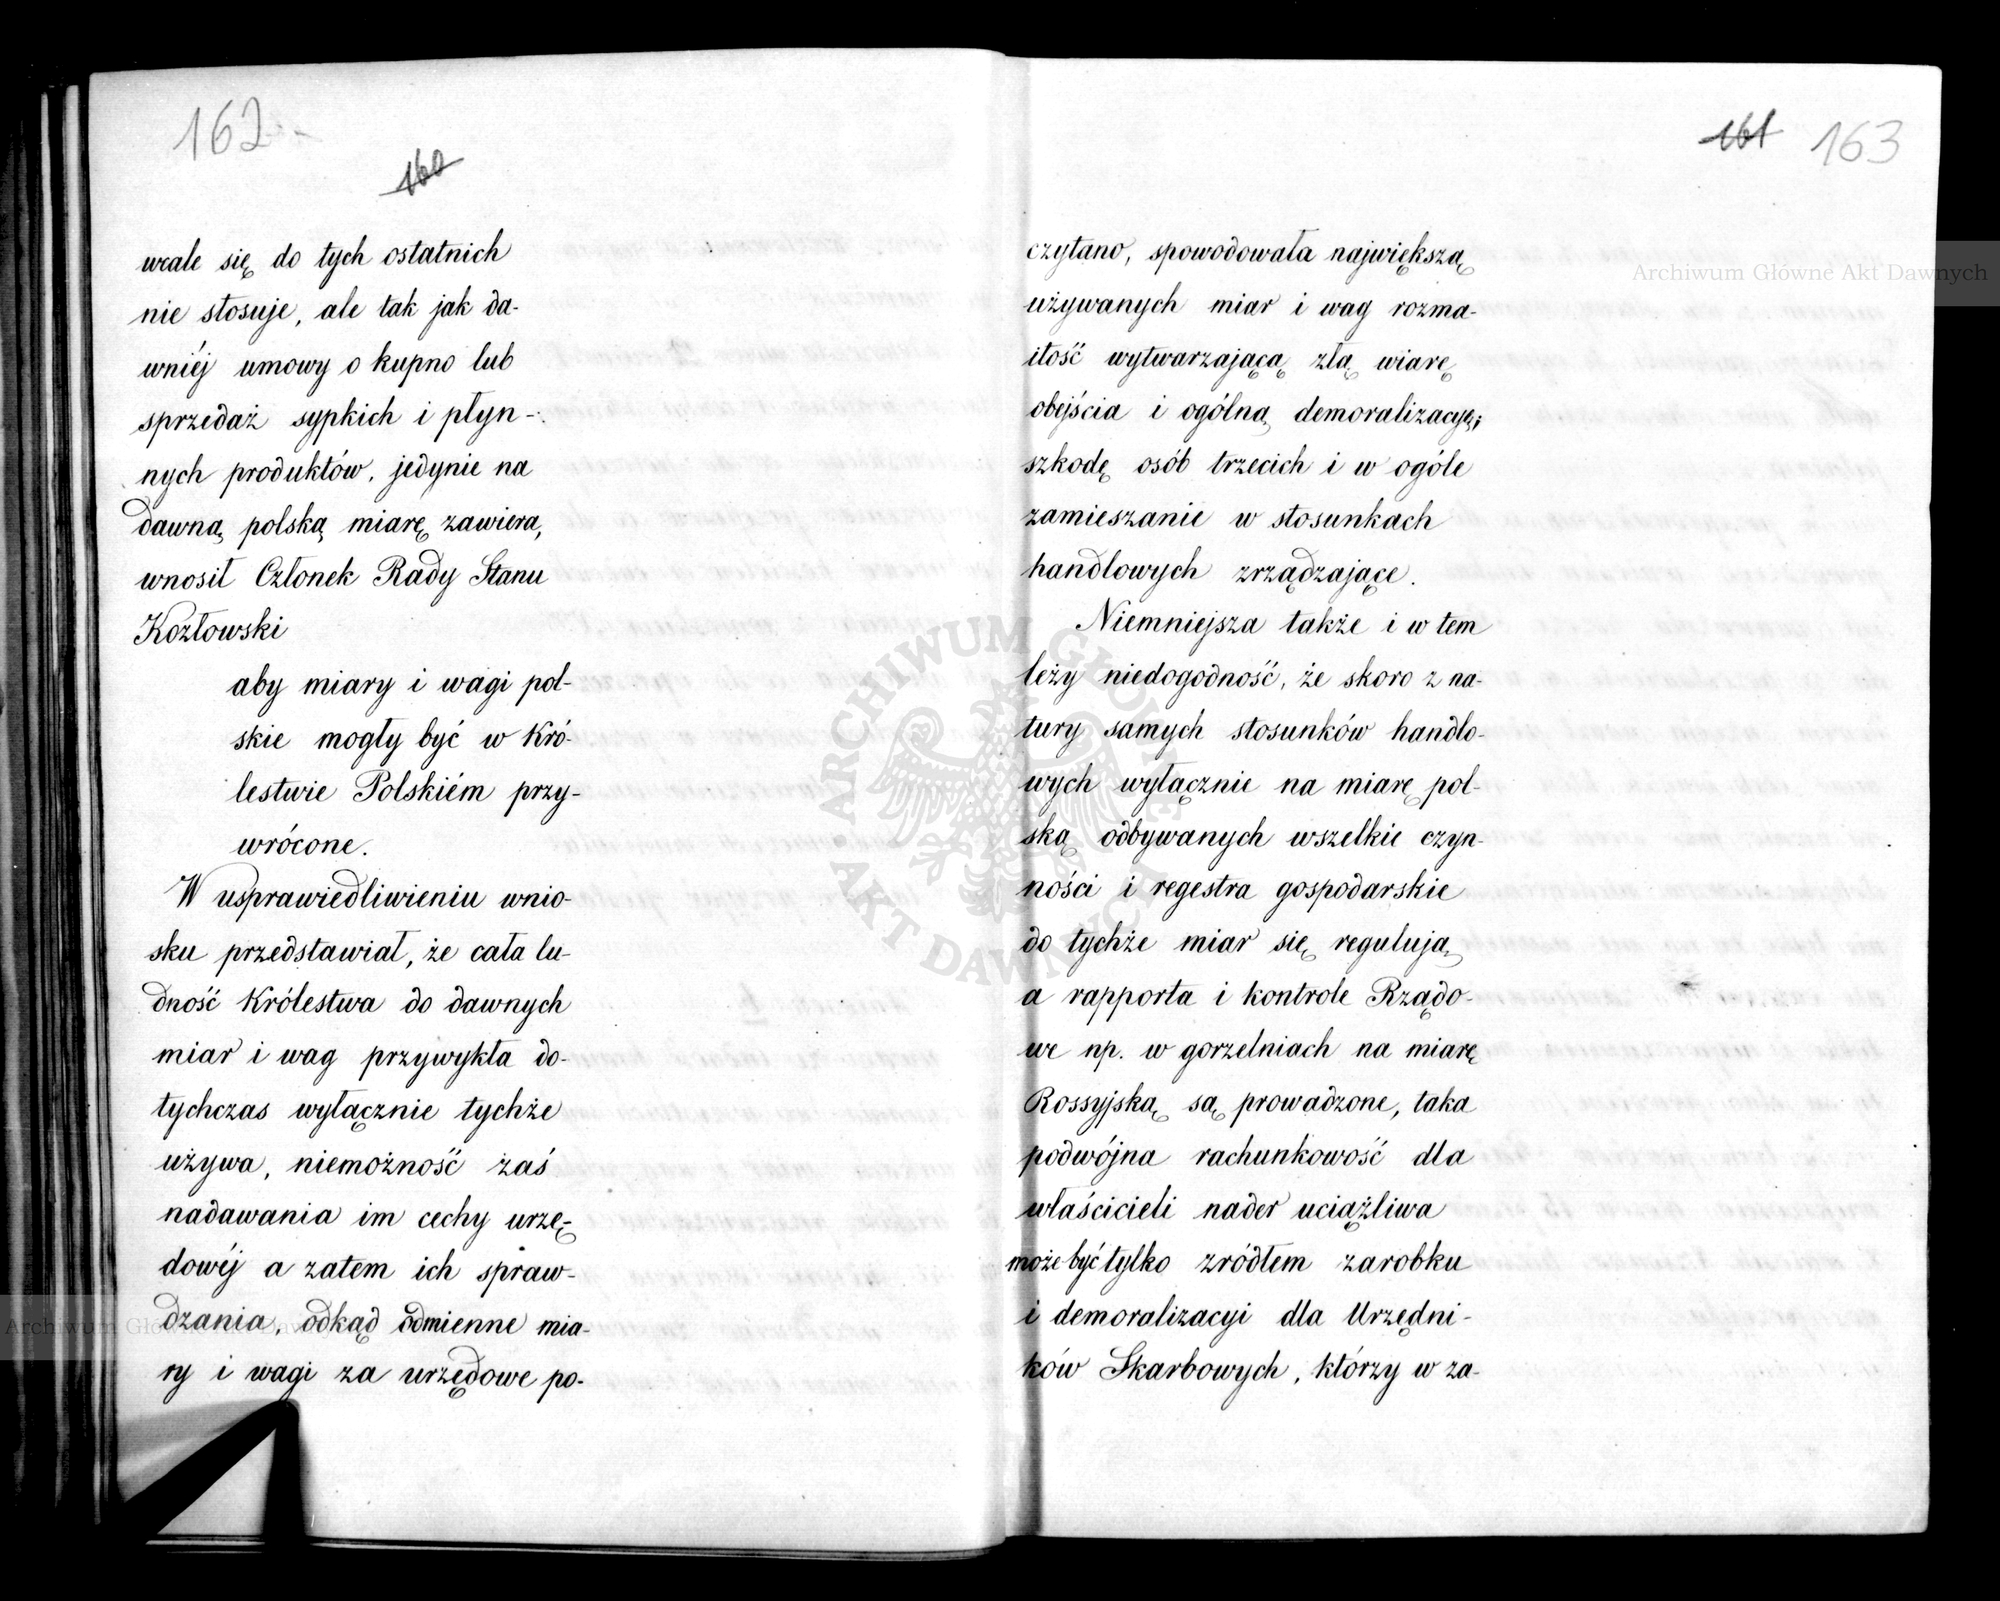 162
160
wcale się do tych ostatnich
nie stosuje, ale tak jak da-
wniéj umowy o kupno lub
sprzedaż sypkich i płyn-
nych produktów, jedynie na
dawną polską miarę zawiera,
wnosił Członek Rady Stanu
Kozłowski
aby miary i wagi pol-
skie mogły być w Kró-
lestwie Polskiém przy-
wrócone.
W usprawiedliwieniu wnio-
sku przedstawiał, że cała lu-
dność Królestwa do dawnych
miar i wag przywykła do-
tychczas wyłącznie tychże
używa, niemożność zaś
nadawania im cechy urzę-
dowéj a zatem ich spraw-
dzania, odkąd odmienne mia-
ry i wagi za urzędowe po-
161 163
czytano, spowodowała największą
używanych miar i wag rozma-
itość wytwarzającą złą wiarę
obejścia i ogólną demoralizacyę,
szkodę osób trzecich i w ogóle
zamieszanie w stosunkach
handlowych zrządzające.
Niemniejsza także i w tem
leży niedogodność, że skoro z na-
tury samych stosunków handlo-
wych wyłącznie na miarę pol-
ską odbywanych wszelkie czyn-
ności i regestra gospodarskie
do tychże miar się regulują,
a rapporta i kontrole Rządo-
we np. w gorzelniach na miarę
Rossyjską są prowadzone, taka
podwójna rachunkowość dla
właścicieli nader uciążliwa
może być tylko zródłem zarobku
i demoralizacyi dla Urzędni-
ków Skarbowych, którzy w za-
Archiwum Główne Akt Dawnych
ARCHIWUM GŁÓWNE AKT DAWNYCH
Archiwum Główne Akt Dawnych